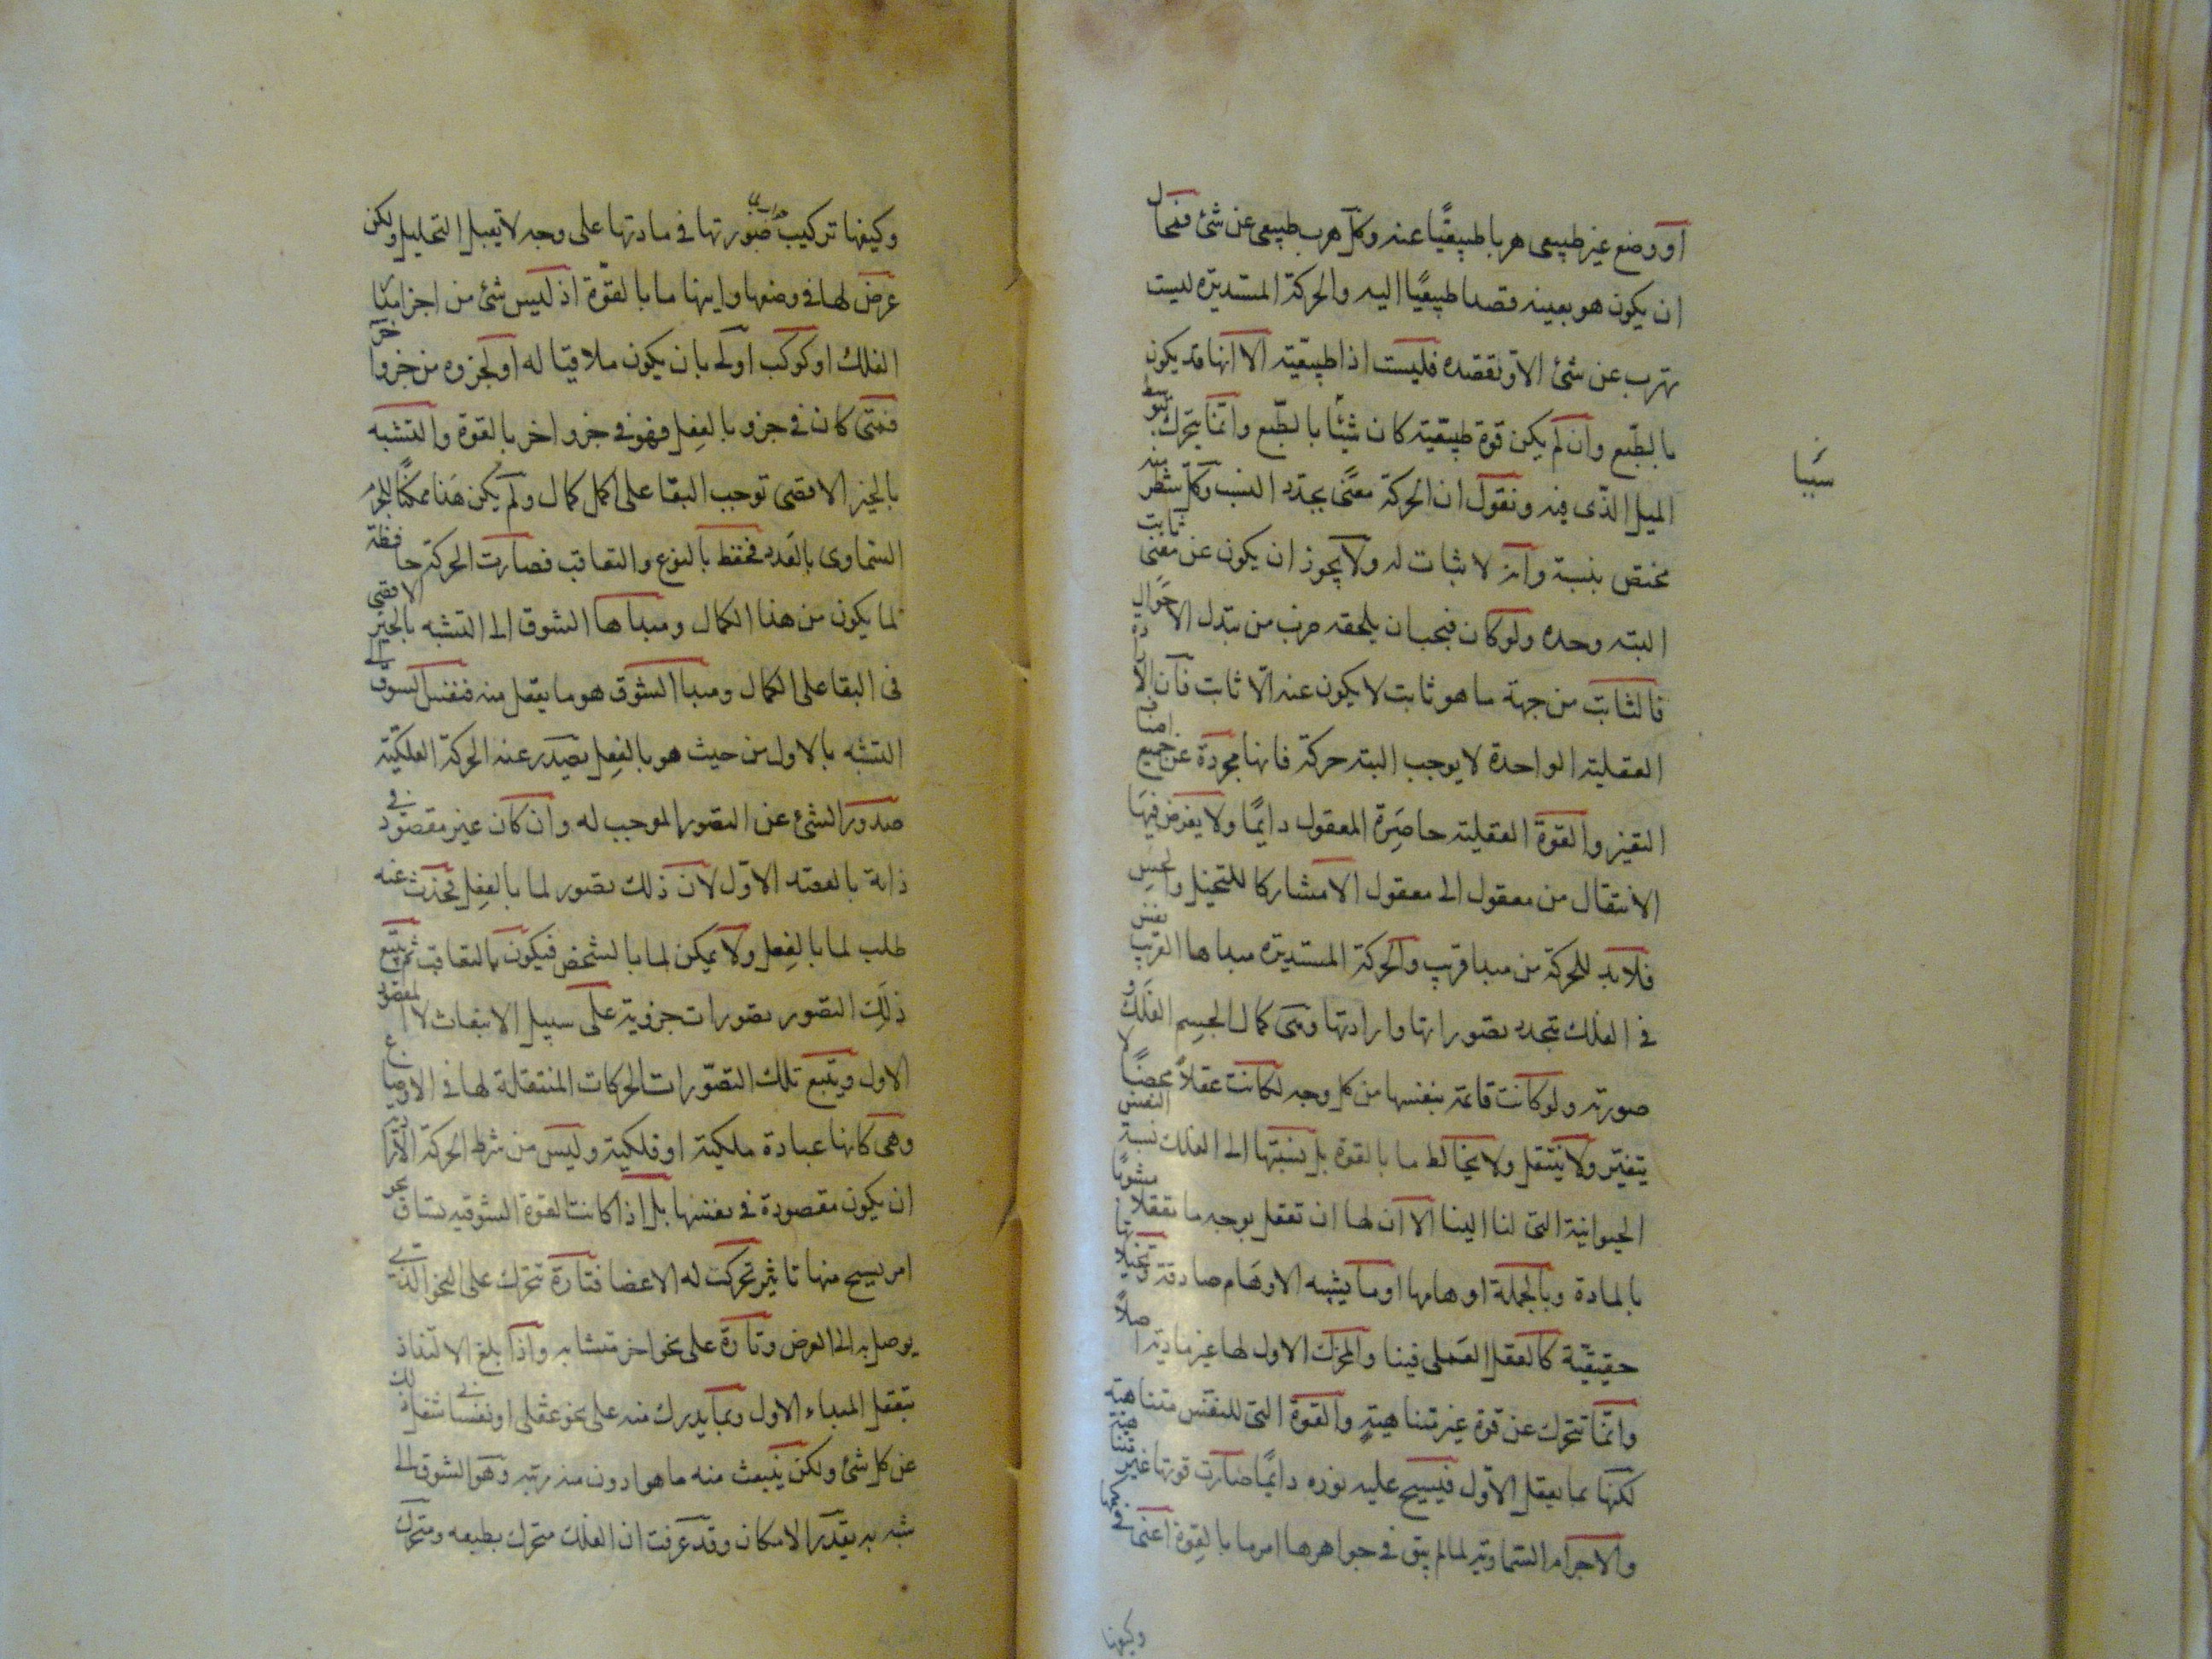 او وضع غير طبيعى هربا طبيعيًا عنه وكل هرب طبيعى عن شئ فمحال
ان يكون هو بعينه قصدا طبيعيًا اليه والحركة المستديرة ليست
تهرب عن شئ الا وتقصده فليست اذا طبيعية الا انها قد يكون
بالطبع وان لم يكن قوة طبيعية كان شيئًا بالطبع وانما يتحرك بتوسط
الميل الذى فيه ونقول ان الحركة معنى يتجدد النسب وكل شطر منه
سببا
مختص بنسبة وانه لا ثبات له ولا يجوز ان يكون عن معنى ثابت
البته وحده ولو كان فيجب ان يلحقه ضرب من تبدل الاحوال
فالثابت من جهة ما هو ثابت لا يكون عنه الا ثابت فان الارادة
العقلية الواحدة لا يوجب البته حركة فانها مجردة عن جميع اصناف
التغير والقوة العقلية حاضرة المعقول دايمًا ولا يفرض فيها
الانتقال من معقول الى معقول الا مشاركا للتخيل والحس
فلابد للحركة من مبدا قريب والحركة المستديرة مبداها القريب نفس
فى الفلك يتجدد تصوراتها وارادتها وهى كمال الجسم الفلك و
صورته ولو كانت قائمة بنفسها من كل وجه لكانت عقلاً محضًا لا
يتغير ولا ينتقل ولا يخالط ما بالقوة بل نسبتها الى الفلك نسبة النفس
الحيوانية التى لنا الينا الا ان لها ان تعقل بوجه ما تعقلا مشوبًا
بالمادة وبالجملة اوهامها او ما يشبه الاوهام صادقة وتخيلاتها
حقيقية كالعقل العملى فينا والمحرك الاول لها غير مادية اصلاً
وانما تتحرك عن قوة غير متناهية والقوة التى للنفس متناهية
لكنها بما يعقل الاول فيسيح عليه نوره دايمًا صارت قوتها غير متناهية
والاجرام السماوية لما لم يبق فى جواهرها امر ما بالقوة اعنى فى كمها
وكيفها
وكيفها تركيب صورتها فى مادتها على وجه لا يقبل التحليل ولكن
عرض لها فى وضعها واينها ما بالقوة اذ ليس شئ من اجزا مدار
الفلك او كوكب اولى بان يكون ملاقيا له او لجزوه من جزوا خر
فمتى كان فى جزو بالفعل فهو فى جزو اخر بالقوة والتشبه
بالخير الاقصى توجب البقا على اكمل كمال ولم يكن هذا ممكنًا للجرم
السماوى بالعدد فحفظ بالنوع والتعاقب فصارت الحركة حافظة
لما يكون من هذا الكمال ومبداها الشوق الى التشبه بالخير الاقصى
فى البقا على الكمال ومبدا الشوق هو ما يعقل منه فنفس الشوق الى
التشبه بالاول من حيث هو بالفعل يصدر عنه الحركة الفلكية
صدور الشئ عن التصور الموجب له وان كان غير مقصود فى
ذاته بالقصد الاول لان ذلك تصور لما بالفعل يحدث عنه
طلب لما بالفعل ولا يمكن لما بالشخص فيكون بالتعاقب ثم يتبع
ذلك التصور تصورات جزوية على سبيل الانبعاث لا المقصود
الاول ويتبع تلك التصورات الحركات المنتقلة لها فى الاوضاع
وهى كانها عبادة ملكية او فلكية وليس من شرط الحركة الارادية
ان يكون مقصودة فى نفسها بل اذا كانت القوة الشوقية تشتاق نحو
امر يسيح منها تاثير تحركت له الاعضا فتارة تتحرك على النحو الذى
يوصل به الى الغرض وتارة على نحو اخر متشابه واذا بلغ الالتذاذ
بتعقل المبداء الاول وبما يدرك منه على نحو عقلى او نفسانى شغل ذلك
عن كل شئ ولكن ينبعث منه ما هو ادون منه مرتبه وهو الشوق الى
شبه به بقدر الامكان وقد عرفت ان الفلك متحرك بطبعه ومتحرك